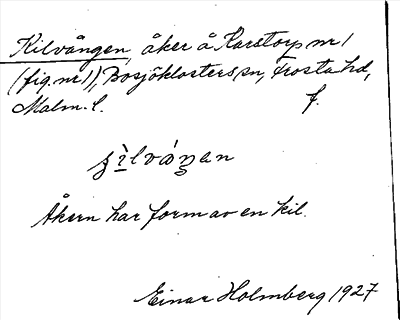 Kilvången, åker å Karstorp nr 1
(fig. nr 1), Bosjöklosters sn, Frosta hd,
Malm. l. f.
Åkern har form av en kil.
Einar Holmberg 1927